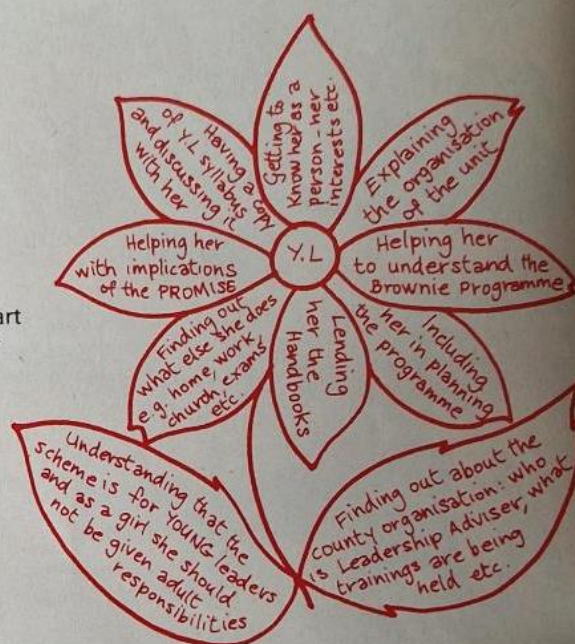 Getting to
know her as a
person - her
interests etc.
Explaining
the organisation
of the unit
Helping her
to understand the
Brownie Programme
Including
her in planning
the programme
Lending
her the
Handbooks
Finding out
what else she does
e.g. home, work,
church, exams
etc.
Helping her
with implications
of the PROMISE
Having a copy
of Y.L syllabus
and discussing it
with her
Y.L
art
Understanding that the
scheme is for YOUNG leaders
and as a girl she should
not be given adult
responsibilities
Finding out about the
county organisation: who
is Leadership Adviser, what
trainings are being
held etc.